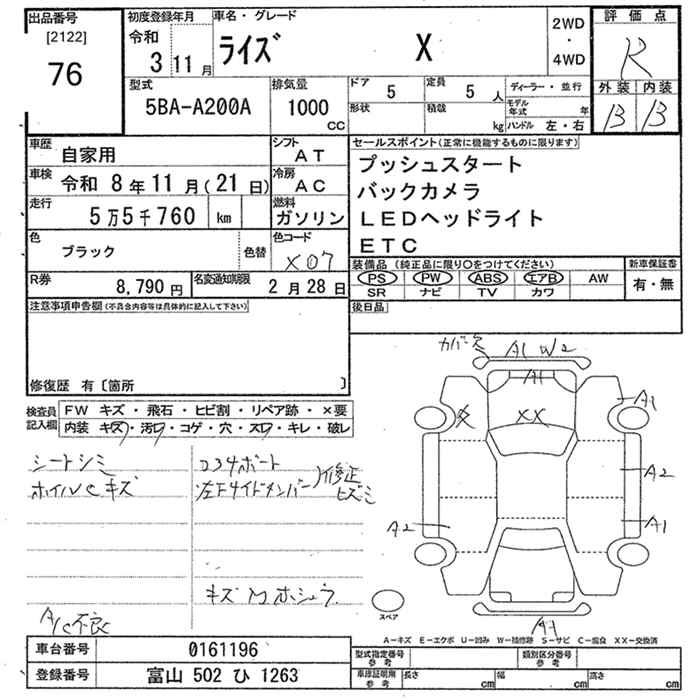 出品番号
[2122]
76
初度登録年月
令和
3 11月
車名・グレード
ライズ X
2WD
・
4WD
評価点
R
外装 内装
B B
型式
5BA-A200A
排気量
1000
cc
ドア
5
定員
5人
形状
積載
kg
ディーラー・並行
モデル年式 年
ハンドル 左・右
車歴
自家用
シフト
AT
車検
令和 8年11月(21日)
冷房
AC
走行
5万5千760 km
燃料
ガソリン
色
ブラック
色替
色コード
X07
R券
8,790円
名変通知期限
2月28日
セールスポイント(正常に機能するものに限ります)
プッシュスタート
バックカメラ
LEDヘッドライト
ETC
装備品(純正品に限り○をつけてください)
PS PW ABS エアB AW
SR ナビ TV カワ
新車保証書
有・無
後日品
注意事項申告欄(不具合内容等は具体的に記入して下さい)
修復歴 有〔箇所 〕
検査員
記入欄
FW キズ・飛石・ヒビ割・リペア跡・×要
内装 キズ・汚レ・コゲ・穴・スレ・キレ・破レ
シートシミ
ホイルCキズ
コア4ポート
左Fサイドメンバー
修正
ヒズミ
A/C不良
カバー欠
A1 W2
A1
X
XX
A1
A2
A1
A2
A1
スペア
A-キズ E-エクボ U-凹み W-補修跡 S-サビ C-腐食 XX-交換済
車台番号
0161196
登録番号
富山 502 ひ 1263
型式指定番号
参考
類別区分番号
参考
車庫証明用
参考
長さ cm
幅 cm
高さ cm